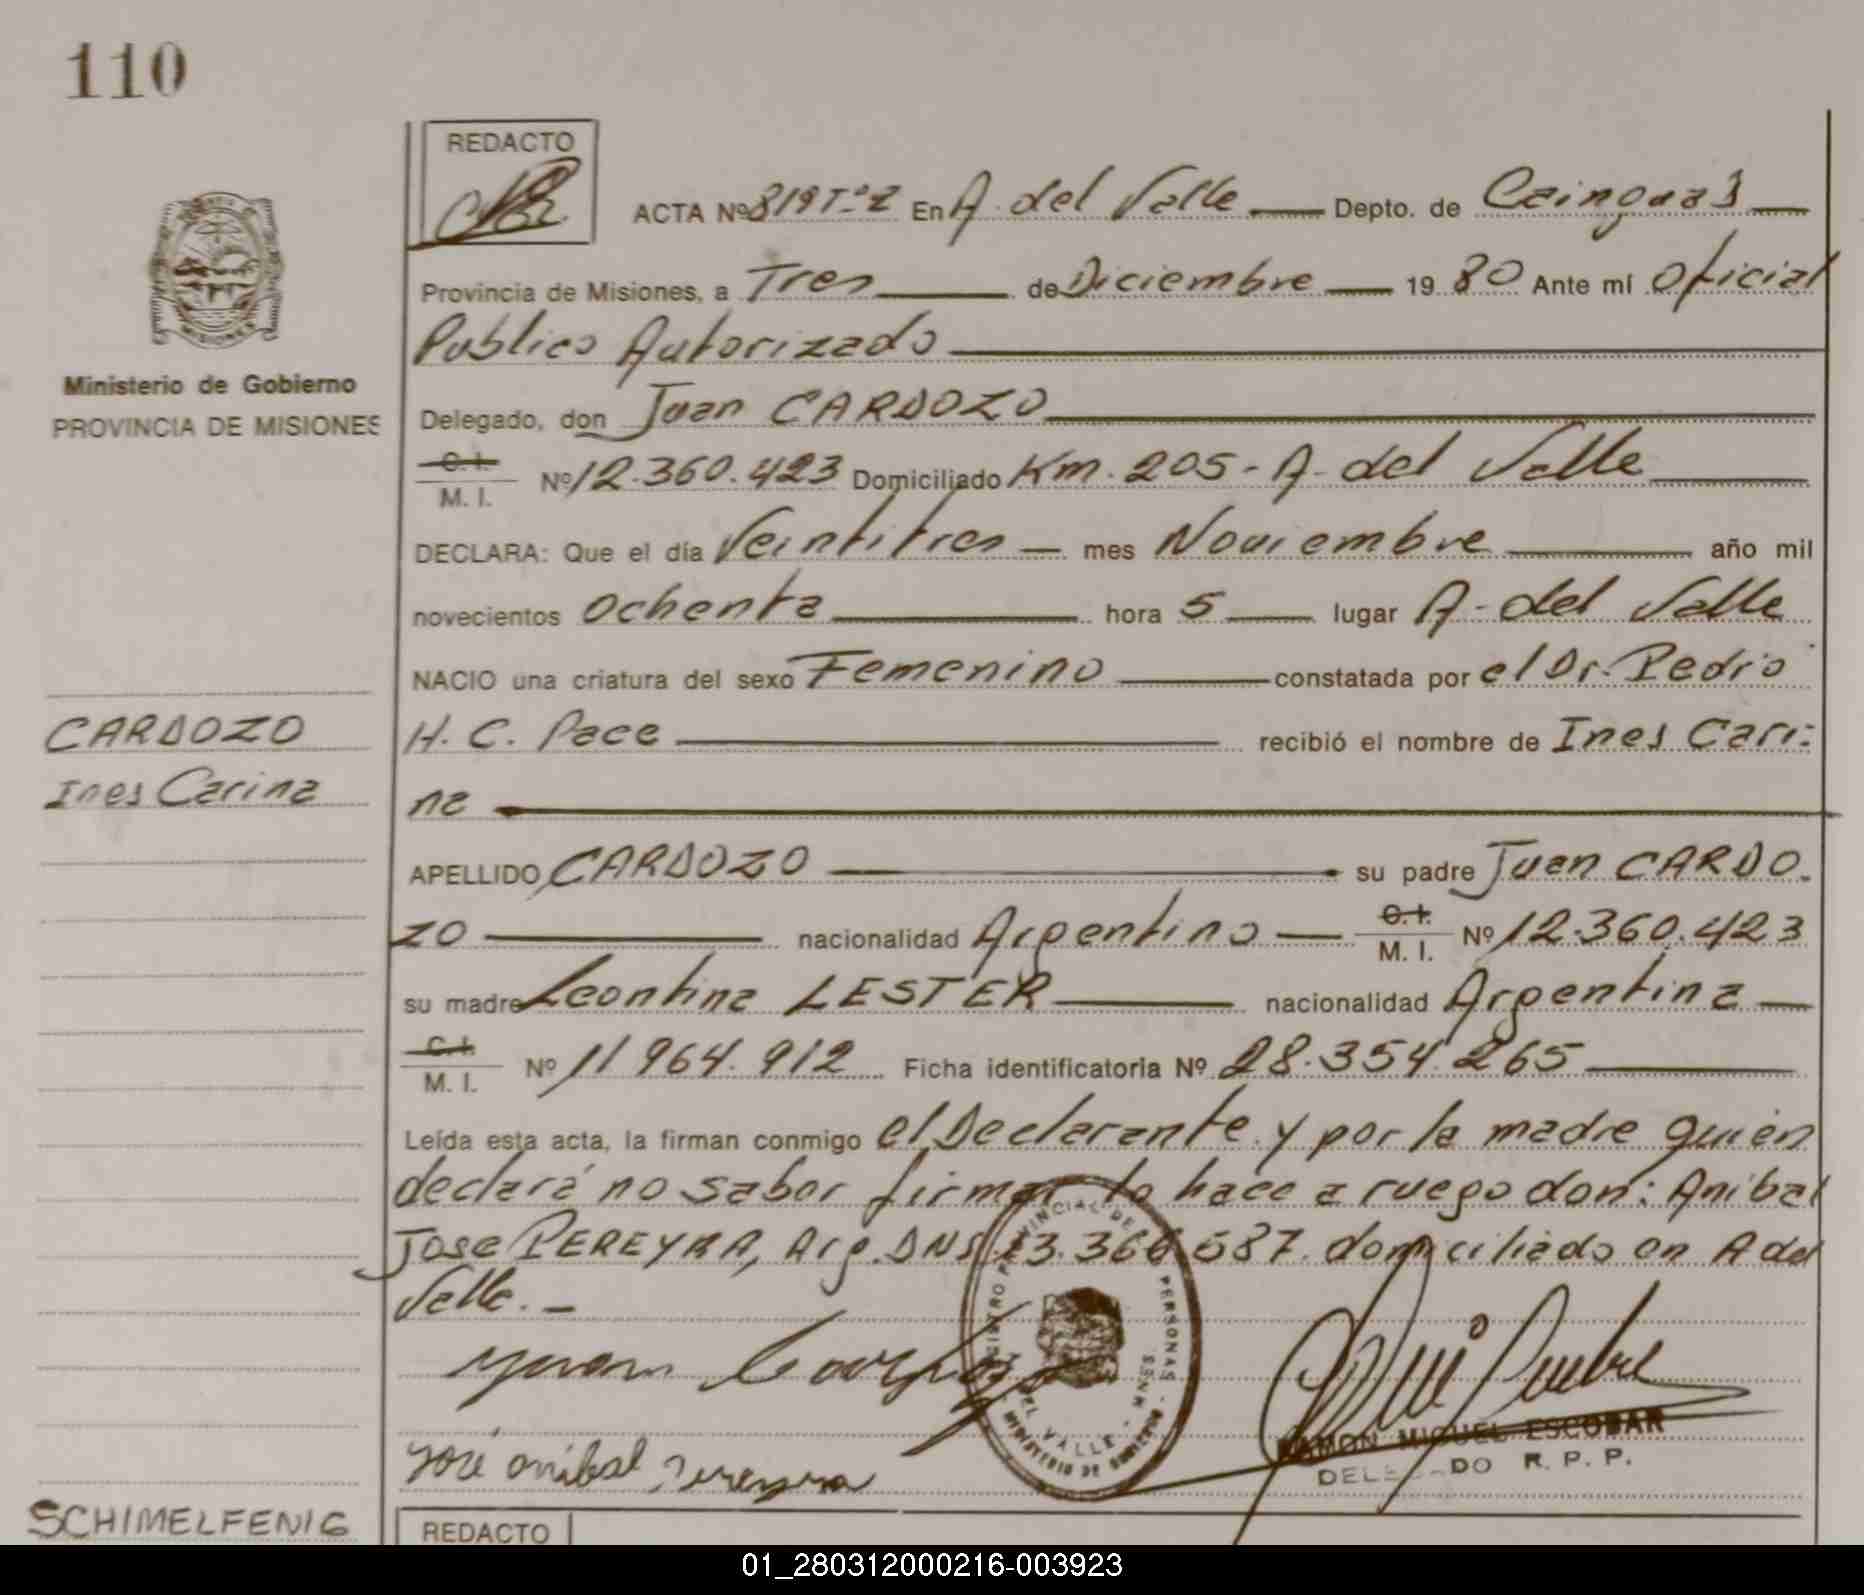 110
REDACTO
ACTA Nº 819 Tº 2 En A. del Valle Depto. de Cainguas
Provincia de Misiones, a Tres de Diciembre 19 80 Ante mí Oficial
Publico Autorizado
Ministerio de Gobierno
PROVINCIA DE MISIONES
Delegado, don Juan CARDOZO
C.I.
M. I. Nº 12.360.423 Domiciliado Km. 205 - A. del Valle
DECLARA: Que el día Veintitres mes Noviembre año mil
novecientos Ochenta hora 5 lugar A. del Valle
NACIO una criatura del sexo Femenino constatada por el Dr. Pedro
CARDOZO
Ines Carina
H. C. Pace recibió el nombre de Ines Cari-
na
APELLIDO CARDOZO su padre Juan CARDO-
ZO nacionalidad Argentino C.I. M. I. Nº 12.360.423
su madre Leontina LESTER nacionalidad Argentina
C.I.
M. I. Nº 11 964.912 Ficha identificatoria Nº 28.354.265
Leída esta acta, la firman conmigo el Declarante y por la madre quien
declará no saber firmar lo hace a ruego don: Anibal
Jose PEREYRA, Arg. domiciliado en A del
Valle. -
REGISTRO PROVINCIAL DE PERSONAS
DEL VALLE - MNES.
MINISTERIO DE GOBIERNO
José anibal Pereyra
RAMON MIGUEL ESCOBAR
DELEGADO R. P. P.
SCHIMELFENIG
REDACTO
01_280312000216-003923